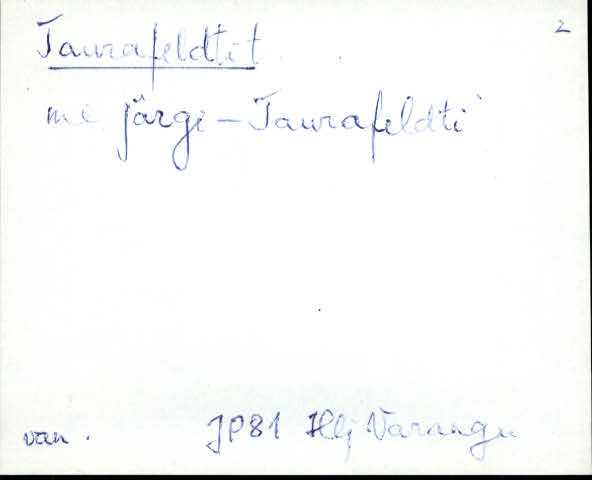 2
Taurafeldtit
me järge - Taurafeldti
van. JP81 Hlj Varangu